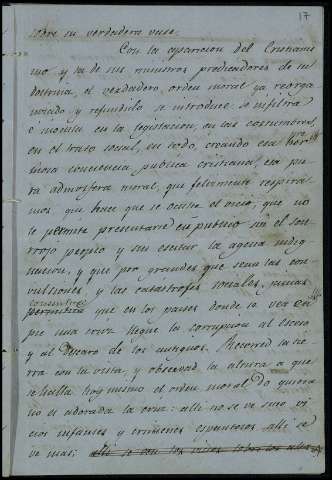 17
sobre su verdadera base.
Con la aparicion del Cristianis
mo, y la de sus ministros predicadores de su
doctrina, el verdadero orden moral ya reorga
nizado y refundido se introduce, se infiltra
é inocula en la legislacion, en las costumbres,
en el trato social, en todo, creando esa
conciencia publica cristiana, esa pu
ra admosfera moral, que felizmente respira
mos que hace que se oculte el vicio, que no
se permite presentarse en publico sin el son
rojo propio y sin escitar la agena indig
nacion, y que por grandes que sean las con
vulsiones, y las catastrofes sociales, jamas
consentira
permitira que en los paises donde se vea en
pie una cruz llegue la corrupcion al esceso
y al descaro de los antiguos. Recorred la tie
rra con la vista, y observad la altura a que
se halla hoy mismo el orden moral do quiera
no es adorada la cruz: alli no se ve sino vi
cios infames y crimenes espantosos alli se
ve mas: alli se ven los vicios